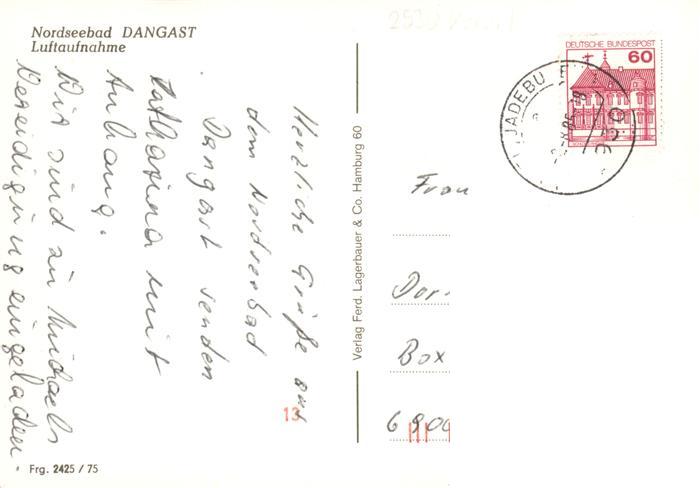 Nordseebad DANGAST
Luftaufnahme
Herzliche Grüße aus
dem Nordseebad
Dangast senden
Katharina mit
Anhang.
Wir sind zu Michaels
Vereidigung eingeladen.
Verlag Ferd. Lagerbauer & Co. Hamburg 60
DEUTSCHE BUNDESPOST
60
JADEBU
Frau
Dor.
Box
6900
13
Frg. 2425 / 75